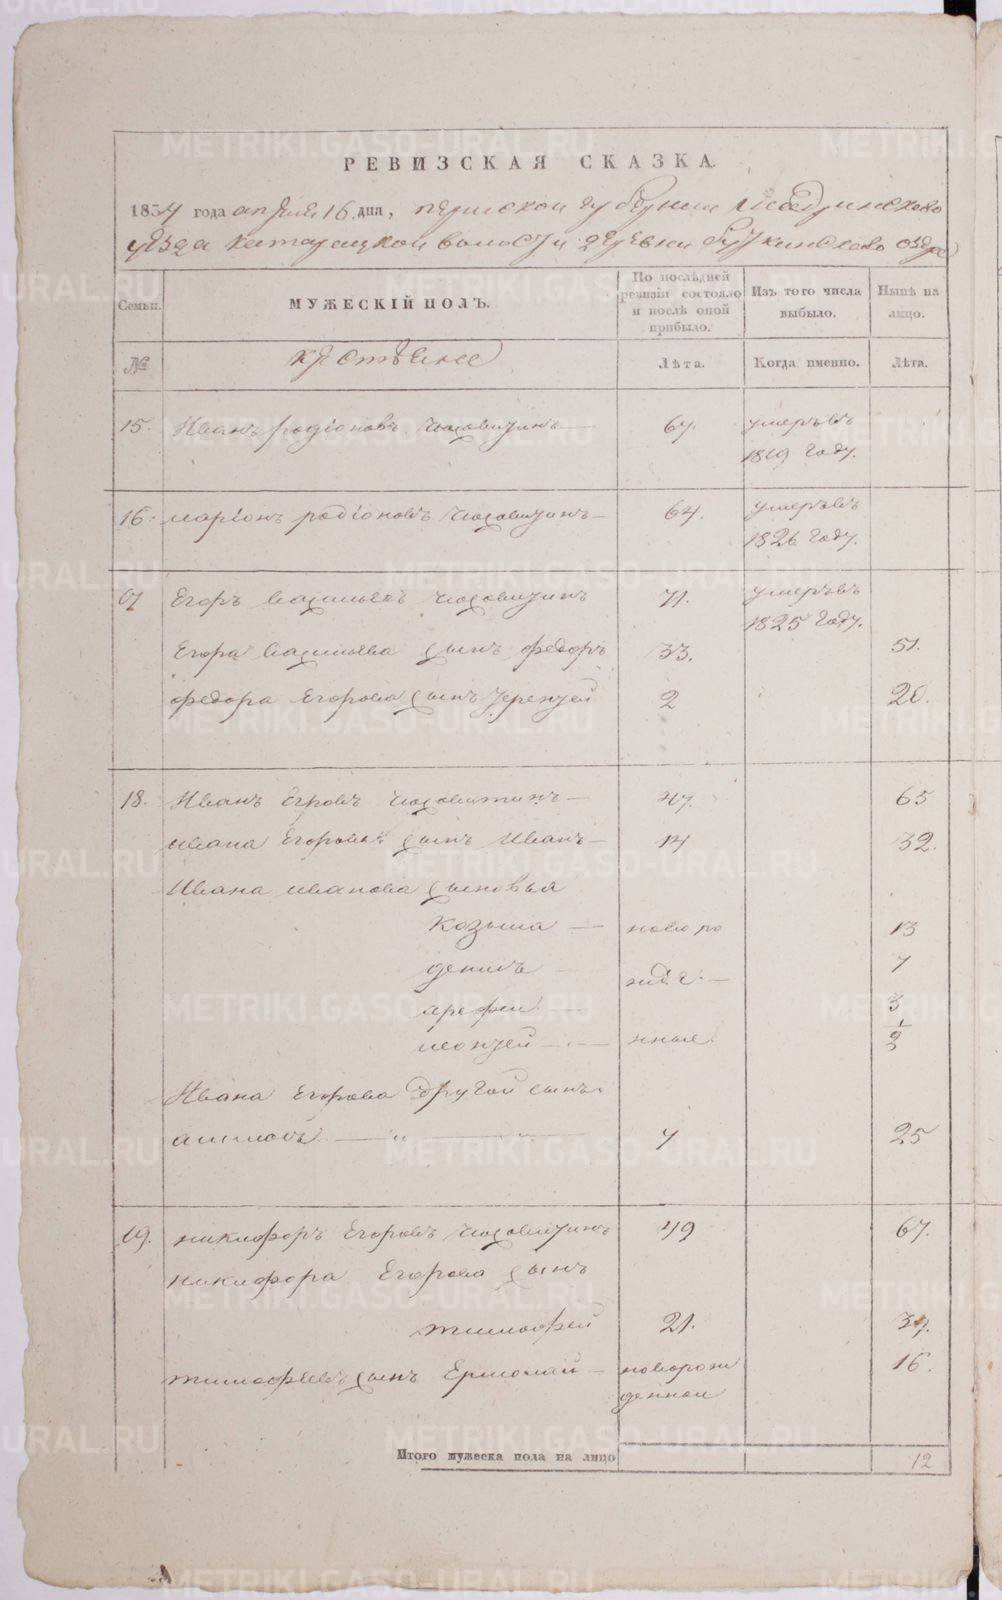 РЕВИЗСКАЯ СКАЗКА.
1834 года апреля 16 дня, пермской губернии Шадринсково
уезда катарацкой волости деревни буткинсково озера
Семьи. МУЖЕСКІЙ ПОЛЪ. По послѣдней ревизіи состояло и послѣ оной прибыло. Изъ того числа выбыло. Нынѣ на лицо.
№ крестьяне Лѣта. Когда именно. Лѣта.
15. Иванъ родіоновъ 67. умеръ въ
1819 году.
16. маріонъ родіоновъ 64. умеръ въ
1826 году.
17 Егоръ васильевъ 71. умеръ въ
1825 году.
Егора васильева сынъ федоръ 33. 51.
федора Егорова сынъ терентей 2 20.
18. Иванъ Егоровъ 47. 65
ивана Егорова сынъ Иванъ 14 32.
Ивана иванова сыновья
козьма ново ро 13
денисъ жде 7
арефей 3
леонтей нные 1/2
Ивана Егорова другой сынъ
7 25
19. никифоръ Егоровъ 49 67.
никифора Егорова сынъ
тимофей 21. 39.
тимофеевъ сынъ Ермолай новорож
денной 16.
Итого мужеска пола на лицо 12
METRIKI.GASO-URAL.RU